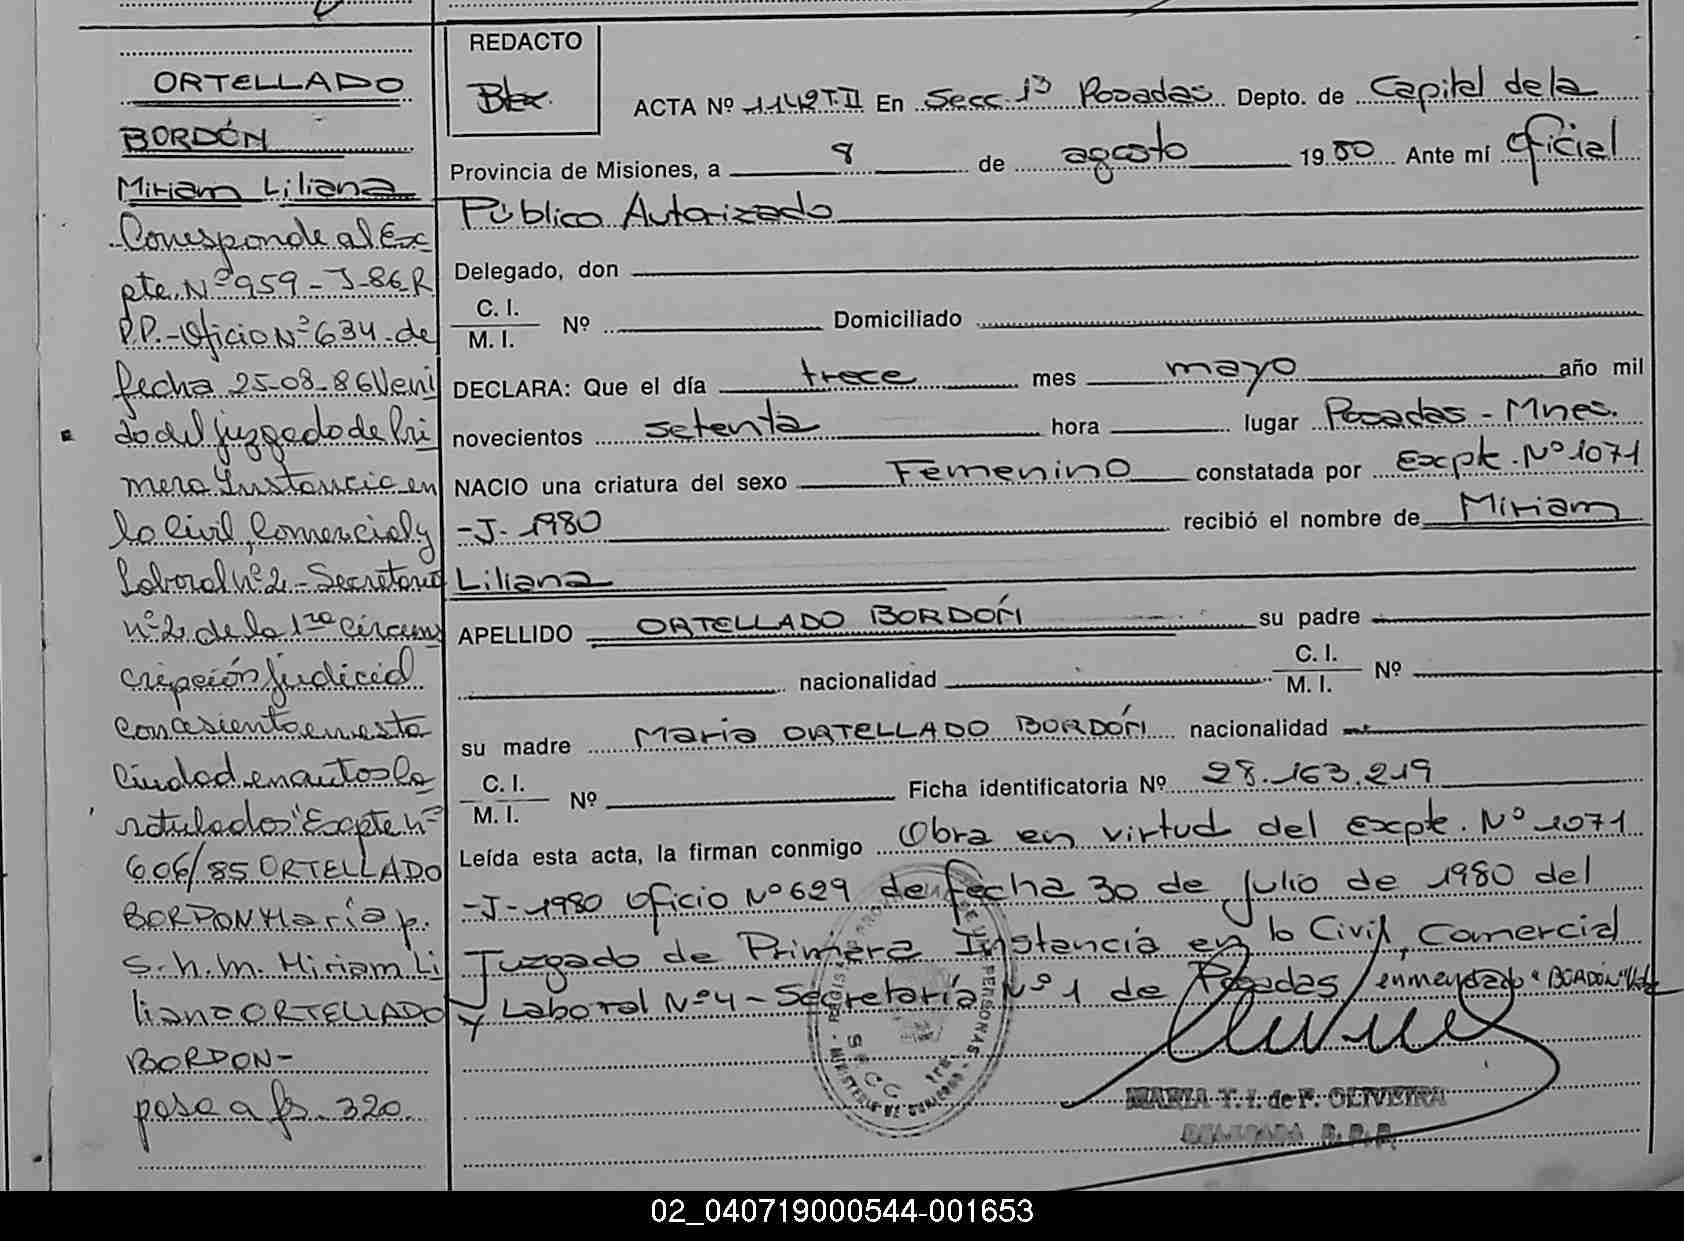 ORTELLADO
BORDÓN
Miriam Liliana
Corresponde al Exc
pte. Nº 959-J-86 R
P.P.-Oficio Nº 634 de
fecha 25-08-86 Veni
do del juzgado de Pri
mera Instancia en
lo Civil, Comercial y
Laboral nº 2 - Secretaria
nº 2 de la 1ra Circuns
cripción Judicial
con asiento en esta
Ciudad en autos ca
ratulados "Excpte nº
606/85 ORTELLADO
BORDON María p.
s.h.m. Miriam Li
liana ORTELLADO
BORDON-
pase a fs. 320.
REDACTO
ACTA Nº 1142 T.II En Secc. 1ª Posadas Depto. de Capital de la
Provincia de Misiones, a 8 de agosto 1980 Ante mí Oficial
Público Autorizado
Delegado, don
C. I.
M. I. Nº Domiciliado
DECLARA: Que el día trece mes mayo año mil
novecientos setenta hora lugar Posadas - Mnes.
NACIO una criatura del sexo Femenino constatada por Excpte. Nº 1071
-J- 1980 recibió el nombre de Miriam
Liliana
APELLIDO ORTELLADO BORDÓN su padre
nacionalidad C. I.
M. I. Nº
su madre María ORTELLADO BORDÓN nacionalidad
C. I.
M. I. Nº Ficha identificatoria Nº 28.163.219
Leída esta acta, la firman conmigo Obra en virtud del Excpte. Nº 1071
-J-1980 Oficio Nº 629 de fecha 30 de julio de 1980 del
Juzgado de Primera Instancia en lo Civil, Comercial
y Laboral Nº 4 - Secretaría Nº 1 de Posadas / enmendado "BORDÓN" Vale
SECC 1ra
MINISTERIO DE GOBIERNO
MARIA T. I. de F. OLIVEIRA
DELEGADA R. P. P.
02_040719000544-001653